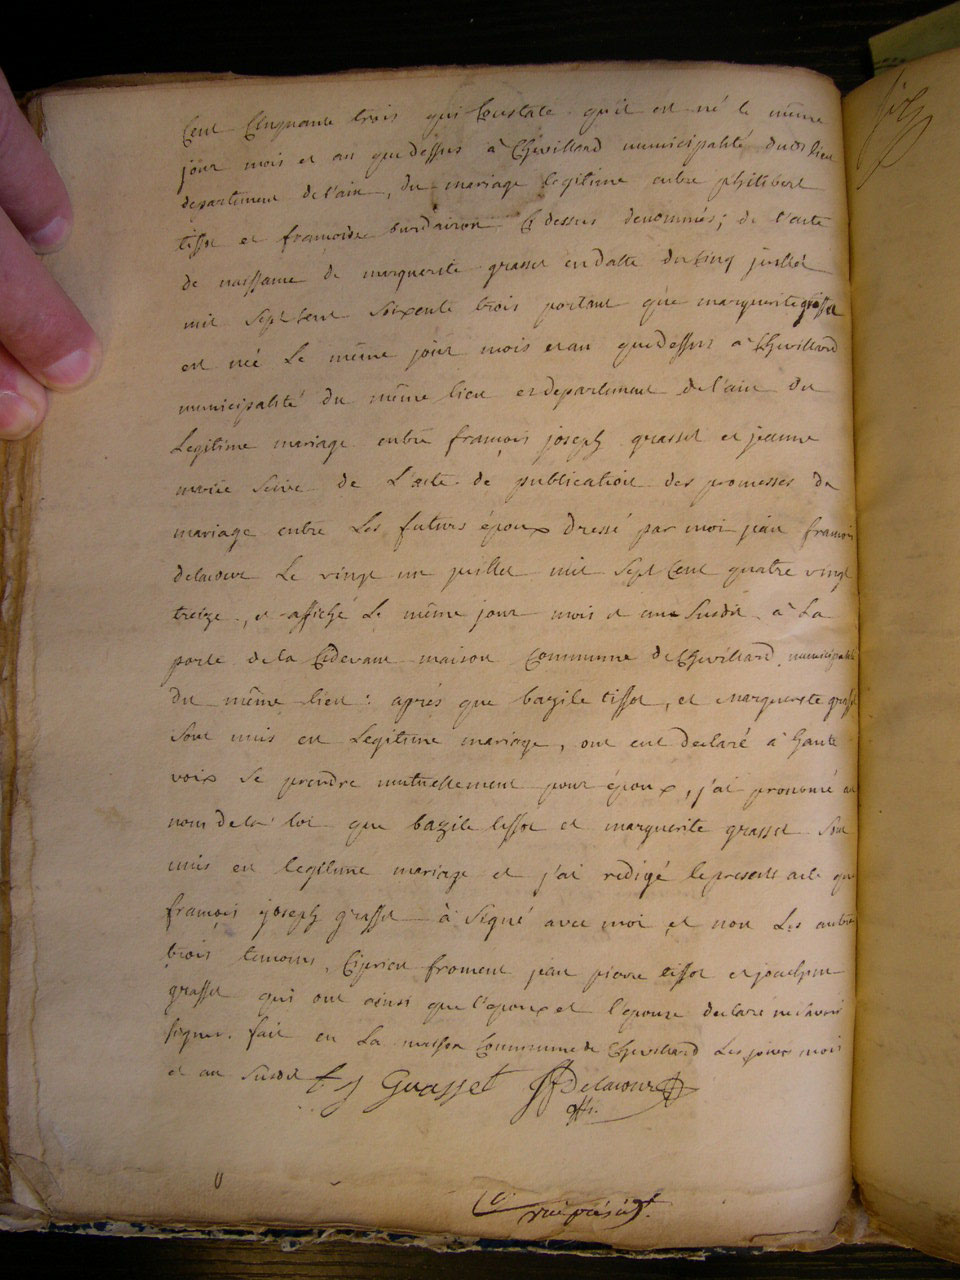 Cent Cinquante trois qui Constate qu'il est né le même
jour mois et an que dessus à Chevillard municipalité dudt lieu
departement de l'ain, du mariage legitime entre philibert
tissot et francoise burdairon Cy dessus denommés; de l'acte
de naissance de marguerite grasset en datte du Cinq juillet
mil Sept Cent Soixente trois portant que marguerite grasset
est née Le même jour mois et an que dessus à Chevillard
municipalité du même lieu et departement de l'ain du
Legitime mariage entre françois joseph grasset et jeanne
marie Seive de L'acte de publication des promesses de
mariage entre Les futurs époux dressé par moi jean françois
delacour Le vingt un juillet mil Sept Cent quatre vingt
treize, et affiché Le même jour mois et an Susdit à La
porte de la Cidevant maison Commune de Chevillard municipalité
du même lieu : après que bazile tissot, et marguerite grasset
Sont unis en Legitime mariage, ont eut declaré à haute
voix Se prendre mutuellement pour époux, j'ai prononcé au
nom de la loi que bazile tissot et marguerite grasset Sont
unis en legitime mariage et j'ai redigé le present acte que
françois joseph grasset à Signé avec moi et non Les autres
trois temoins, Ciprien froment jean pierre tissot et
grasset qui ont ainsi que l'epoux et l'épouse declaré ne Savoir
signer. fait en La maison Commune de Chevillard Les jour mois
et an Susdit f j Grasset jf Delacour
offi.